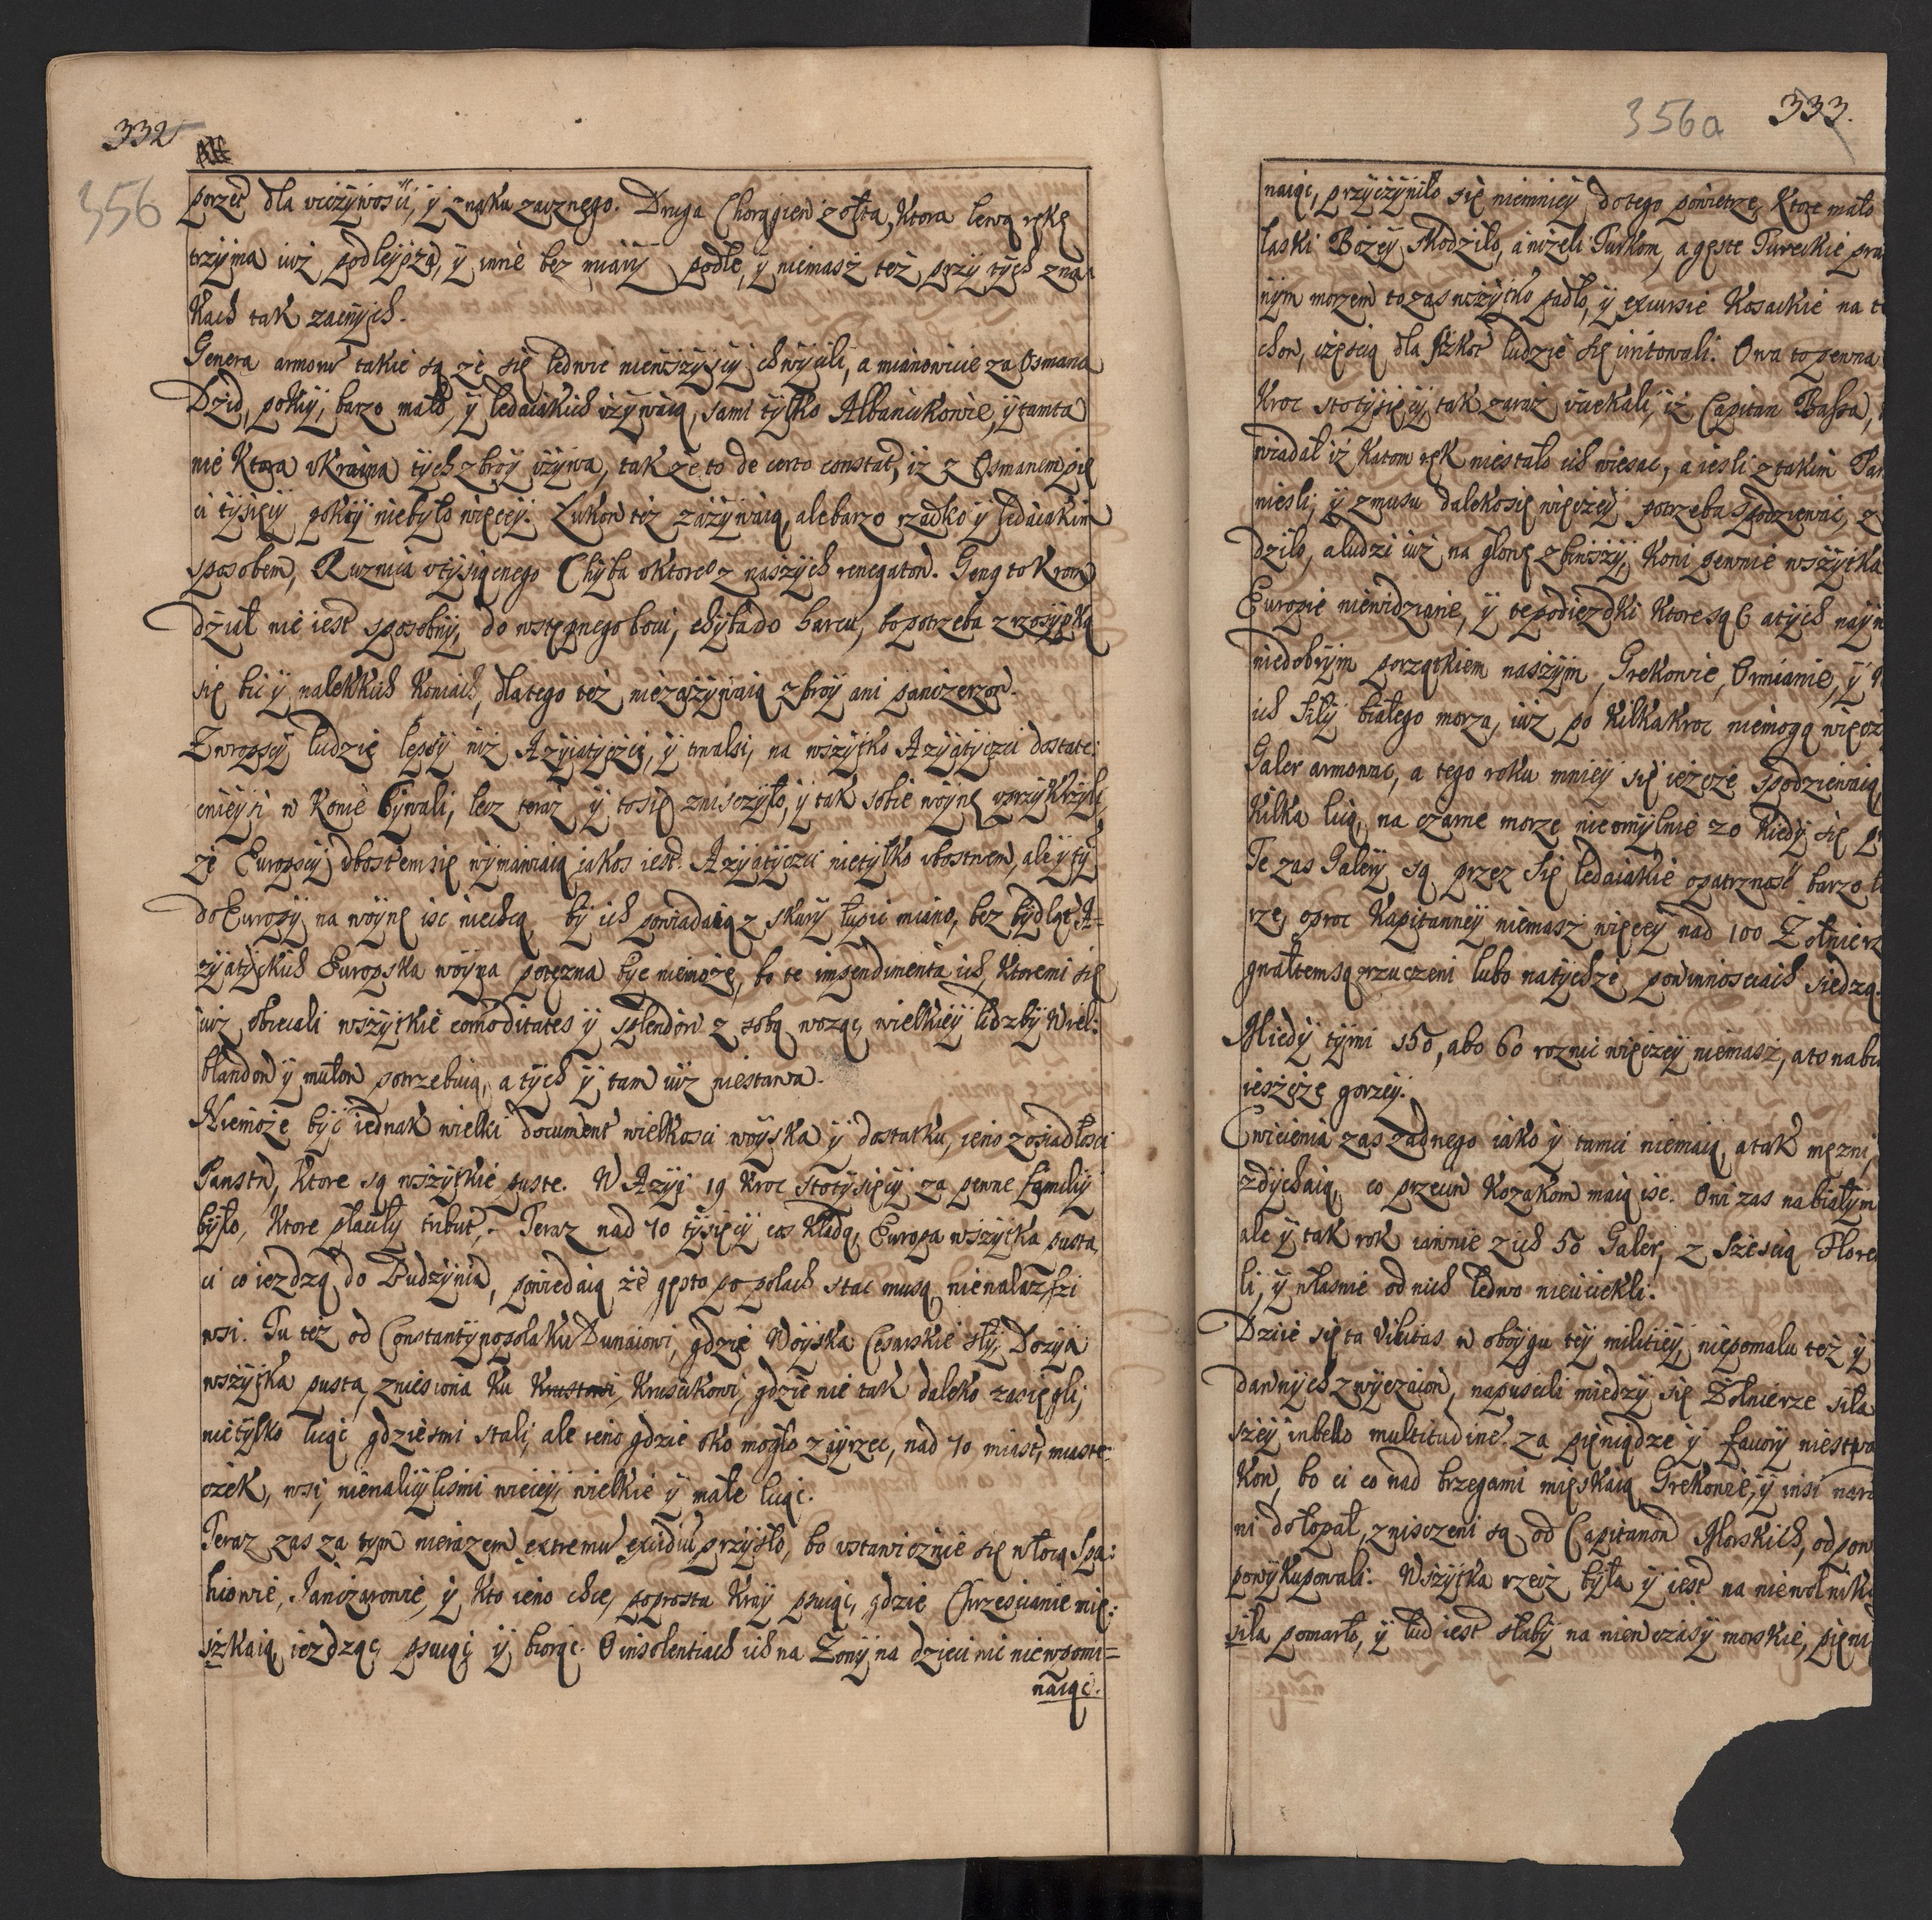 332
356
porzec dla vcczywosci, ÿ znaku zacznego. Druga Chorągiew zołta, Ktora lewą rękę
trzÿma iuż podleÿsza, ÿ inne bez miarÿ podłe, ÿ niemasz też przÿ tÿch zna-
Kach tak zacnÿch.
Genera armorum takie są że się ledwie niewszÿsci chwÿcili, a mianowicie za Osmana
Dzid, pokiÿ, barzo mało, ÿ ledaiakich vżÿwaią, sami tÿlko Albańcikowie, ÿ tamta
nie Ktora vkraina tÿch zbroÿ vżÿwa, tak że to de certo constat, iż z Osmanem pię
ci tÿsięcÿ pokiÿ niebÿło więceÿ. Łukow też zażÿwaią, ale barzo rzadko ÿ ledaiakim
sposobem, Ruznica v tÿsiącnego Chÿba v ktorego z naszÿch renegatow. Geng to Krom
dział nie iest sposobnÿ, do wstępnego boiu, chÿba do harcu, bo potrzeba z rozsÿpką
się bic ÿ na lekkich Koniach, dlatego też nie zażÿwaią zbroÿ ani pancerzow.
Ewropscÿ ludzie lepsÿ niż Azÿiatÿczci, ÿ trwalsi, na wszÿtko Azÿatÿczci dostate:
cznieÿsi w Konie bÿwali, lecz teraz ÿ to się zniszczÿło, ÿ tak sobie woÿnę vprzÿkrzÿli,
że Europscÿ vbostwem się wÿmawiaią iakoż iest. Azÿatÿczci nietÿlko vbostwem, ale ÿ tÿ
do Europÿ na woÿnę isc niechcą, bÿ ich powiadaią z skurÿ łupic miano, bez bÿdląt A-
zÿatÿckich Europska woÿna potężna bÿc niemoże, bo te impendimenta ich, Ktoremi się
iuż obiecali wszÿtkie comoditates ÿ splendor z sobą wożąc, wielkieÿ liczbÿ Wiel:
błandow ÿ mułow potrzebuią, a tÿch ÿ tam iuż niestawa.
Niemoże bÿć iednak wielki document wielkosci woÿska ÿ dostatku, ieno z osiadłosci
Panstw, Ktore są wszÿtkie puste. W Azÿi 19 kroc stotÿsięcÿ za pewne familiÿ
bÿło, Ktore płaciłÿ tribut. Teraz nad 70 tÿsięcÿ cos Kładą, Europa wszÿtka pusta,
ci co iezdzą do Budzÿnia, powiedaią że gęsto po polach stac muszą nie nalazszi
wsi. Tu też od Constantÿnopola ku Dunaiowi, gdzie Woÿska Cesarskie słÿ, Dozÿa
wszÿtka pusta, zniesiona ku Krustowi, Kruscikowi, gdzie nie tak daleko zasięgli,
nietÿlko licąc gdziesmi stali, ale ieno gdzie oko mogło zaÿrzec, nad 70 miast, miaste-
czek, wsi, nienaliczÿlismi więceÿ, wielkie ÿ małe licąc.
Teraz zas za tÿm nierazem extremu excidiu przÿszło, bo vstawicznie się włocą Spa:
hiowie, Janiczarowie, ÿ Kto ieno chce, poprostu Kraÿ psuiąc, gdzie Chrzescianie mię:
szkaią, iezdząc, psuiąc ÿ biorąc. O insolentiach ich na Zonÿ na dzieci nic niewspomi=
naiąc.
356a 333.
naiąc, przÿczÿniło się niemnieÿ do tego powietrze, Ktore mało
łaski Bożeÿ szkodziło, aniżeli Turkom, a gęste Tureckie pra
nÿm morzem to zas wszÿtko padło, ÿ excursie Kosackie na t
chow, częscią dla szkod ludzie się vmitowali. Owa to pewna
Kroc stotÿsięcÿ tak zaraz vciekali, iż Capitan Bassa,
wiadał iż Katom rąk niestało ich wiesac, a iesli z takim Pan
niesli, ÿ zmusu daleko się więczeÿ potrzeba spodziewać, z
dziło, a ludzi iuż na głowę zbiwszÿ, Koni pewnie wszÿtka
Europie niewidziane, ÿ te podiezdki Ktore są 6 a tÿch naÿw
niedobrÿm porządkiem naszÿm, Grekowie, Ormianie, ÿ
ich siłÿ białego morza, iuż po Kilkakroc niemogą więcz
Galer armowac, a tego roku mnieÿ się ieszcze spodziewaią,
Kilka licą, na czarne morze nieomÿlnie 20 Kiedÿ się
Te zas Galerÿ są przez się ledaiakie opatrznosc barzo
rze, oproc Kapitanneÿ niemasz więceÿ nad 100 Zołnierz
gnałtem są wrzuczeni lubo na tÿchże powinnosciach siedzą.
Miedzÿ tÿmi 150, abo 60 roznic więczeÿ niemasz, a to na
ieszcze gorzeÿ.
Cwiczenia zas żadnego iako ÿ tamci niemaią, a tak mężni,
zdÿchaią, co przeciw Kozakom maią isc. Oni zas na białÿm
ale ÿ tak rok iawnie z ich 50 Galer, z Szescią Flore
li, ÿ własnie od nich ledwo nieuciekli.
Dzieie się ta vilitas w oboÿgu teÿ militieÿ, niepomału też ÿ
dawnÿch zwÿczaiow, napuscili miedzÿ się Zołnierze siła
szeÿ inbello multitudine za pieniądze ÿ favorÿ
kow, bo ci co nad brzegami mięszkaią Grekowie, ÿ insi
ni do łopat, zniszczeni są od Capitanow Morskich, od
powÿkupowali. Wszÿtka rzecz bÿła ÿ iest na niewolnika
siła pomarło, ÿ lud iest słabÿ na niewczasÿ morskie,